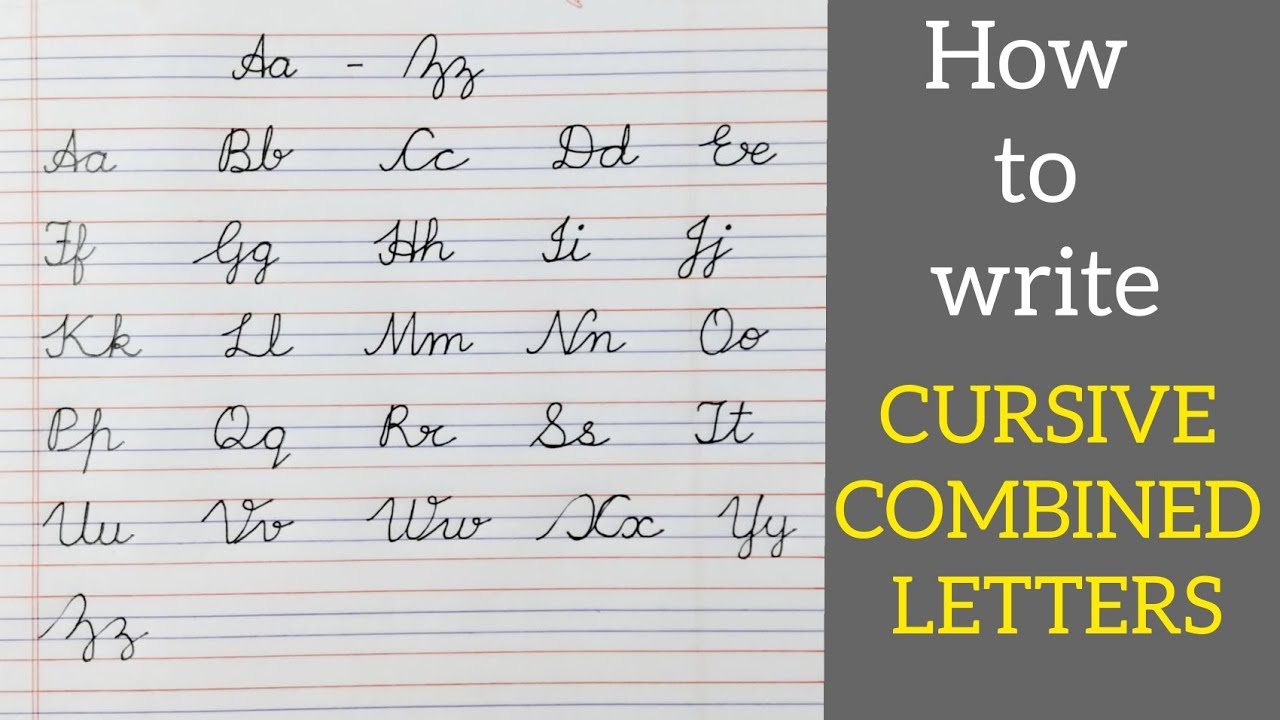 Aa - Zz
Aa Bb Cc Dd Ee
Ff Gg Hh Ii Jj
Kk Ll Mm Nn Oo
Pp Qq Rr Ss Tt
Uu Vv Ww Xx Yy
Zz
How
to
write
CURSIVE
COMBINED
LETTERS